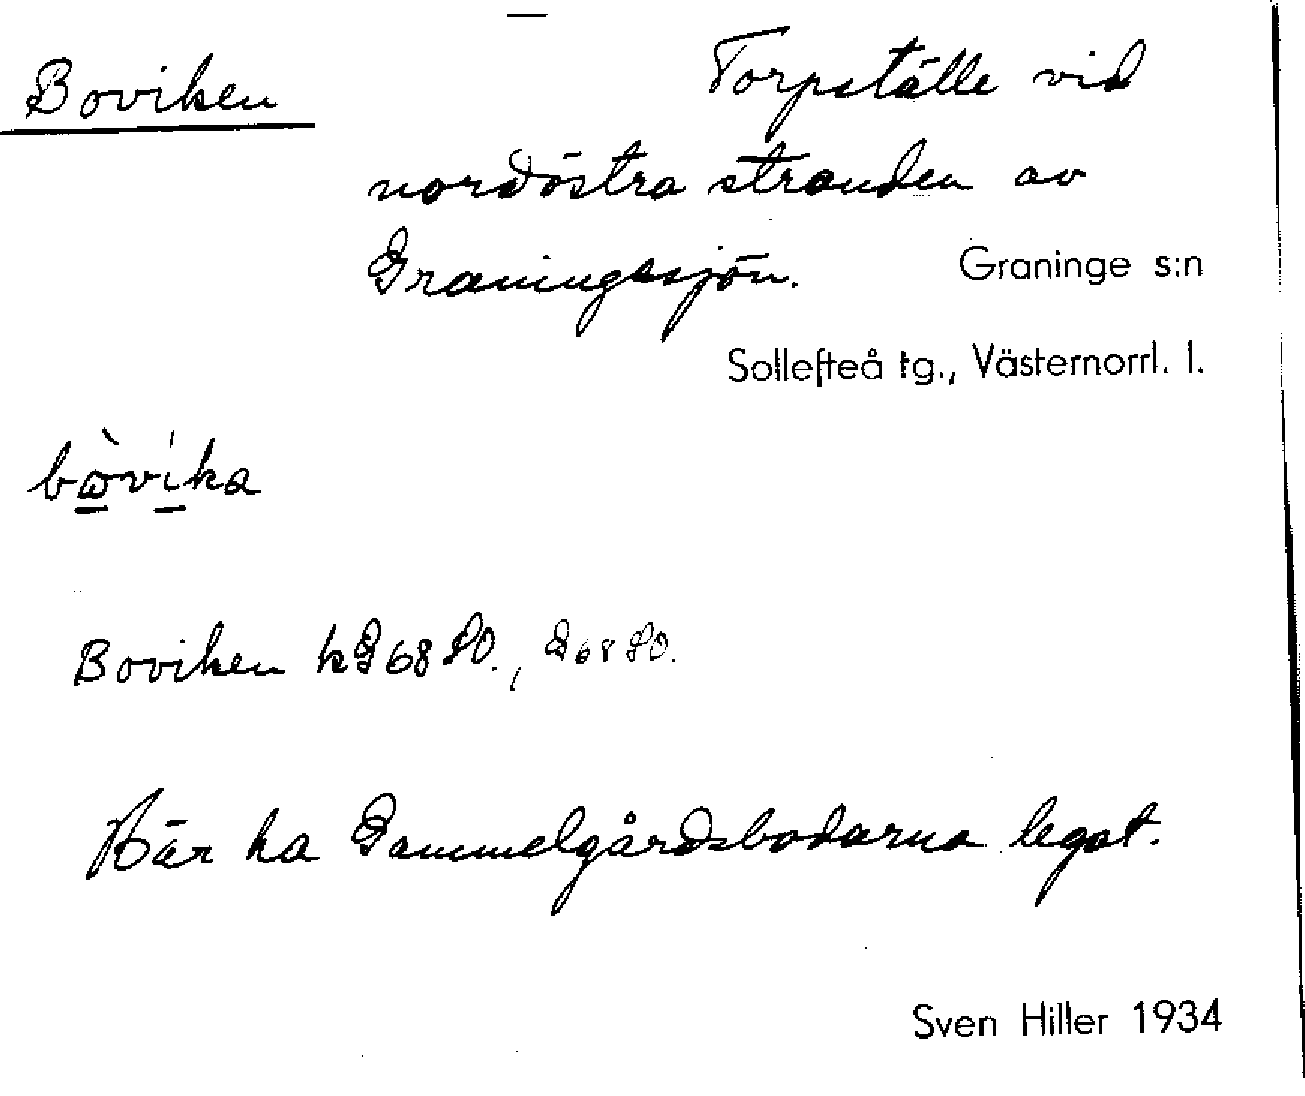 Boviken
Torpställe vid
nordöstra stranden av
Graningssjön.
Graninge s:n
Sollefteå tg., Västernorrl. l.
bɷ̀vi̍ka
Boviken kG68 SO., G68 SO.
Här ha Gammelgårdsbodarna legat.
Sven Hiller 1934